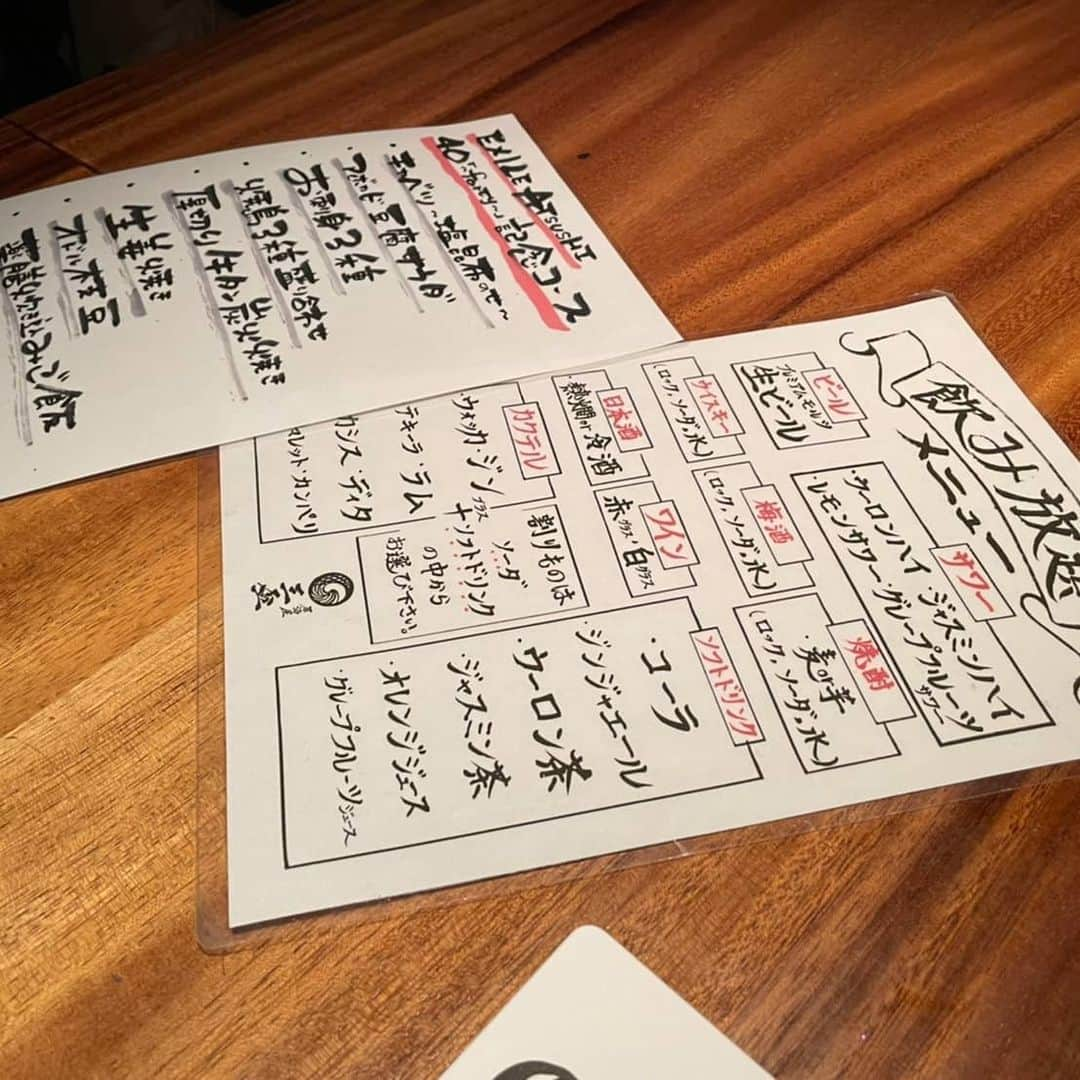 EXILE ATSUSHI
記念コース
・キャベツ〜塩昆布のせ〜
・アボカド豆腐サラダ
・お刺身3種
・焼鳥3種盛り合わせ
・厚切り牛タン炭火焼き
・生姜焼き
炊き込みご飯
飲み放題
メニュー
ビール
プレミアムモルツ
生ビール
サワー
・ウーロンハイ・ジャスミンハイ
・レモンサワー・グレープフルーツサワー
ウイスキー
(ロック,ソーダ,水)
梅酒
(ロック,ソーダ,水)
焼酎
・麦or芋
(ロック,ソーダ,水)
日本酒
熱燗or冷酒
ワイン
赤グラス・白グラス
ソフトドリンク
・コーラ
・ジンジャエール
・ウーロン茶
・ジャスミン茶
・オレンジジュース
・グレープフルーツジュース
カクテル
・ウォッカ・ジン
テキーラ・ラム
カシス・ディタ
・カンパリ
割りものは
ソーダ
プラス
+ソフトドリンク
の中から
お選び下さい。